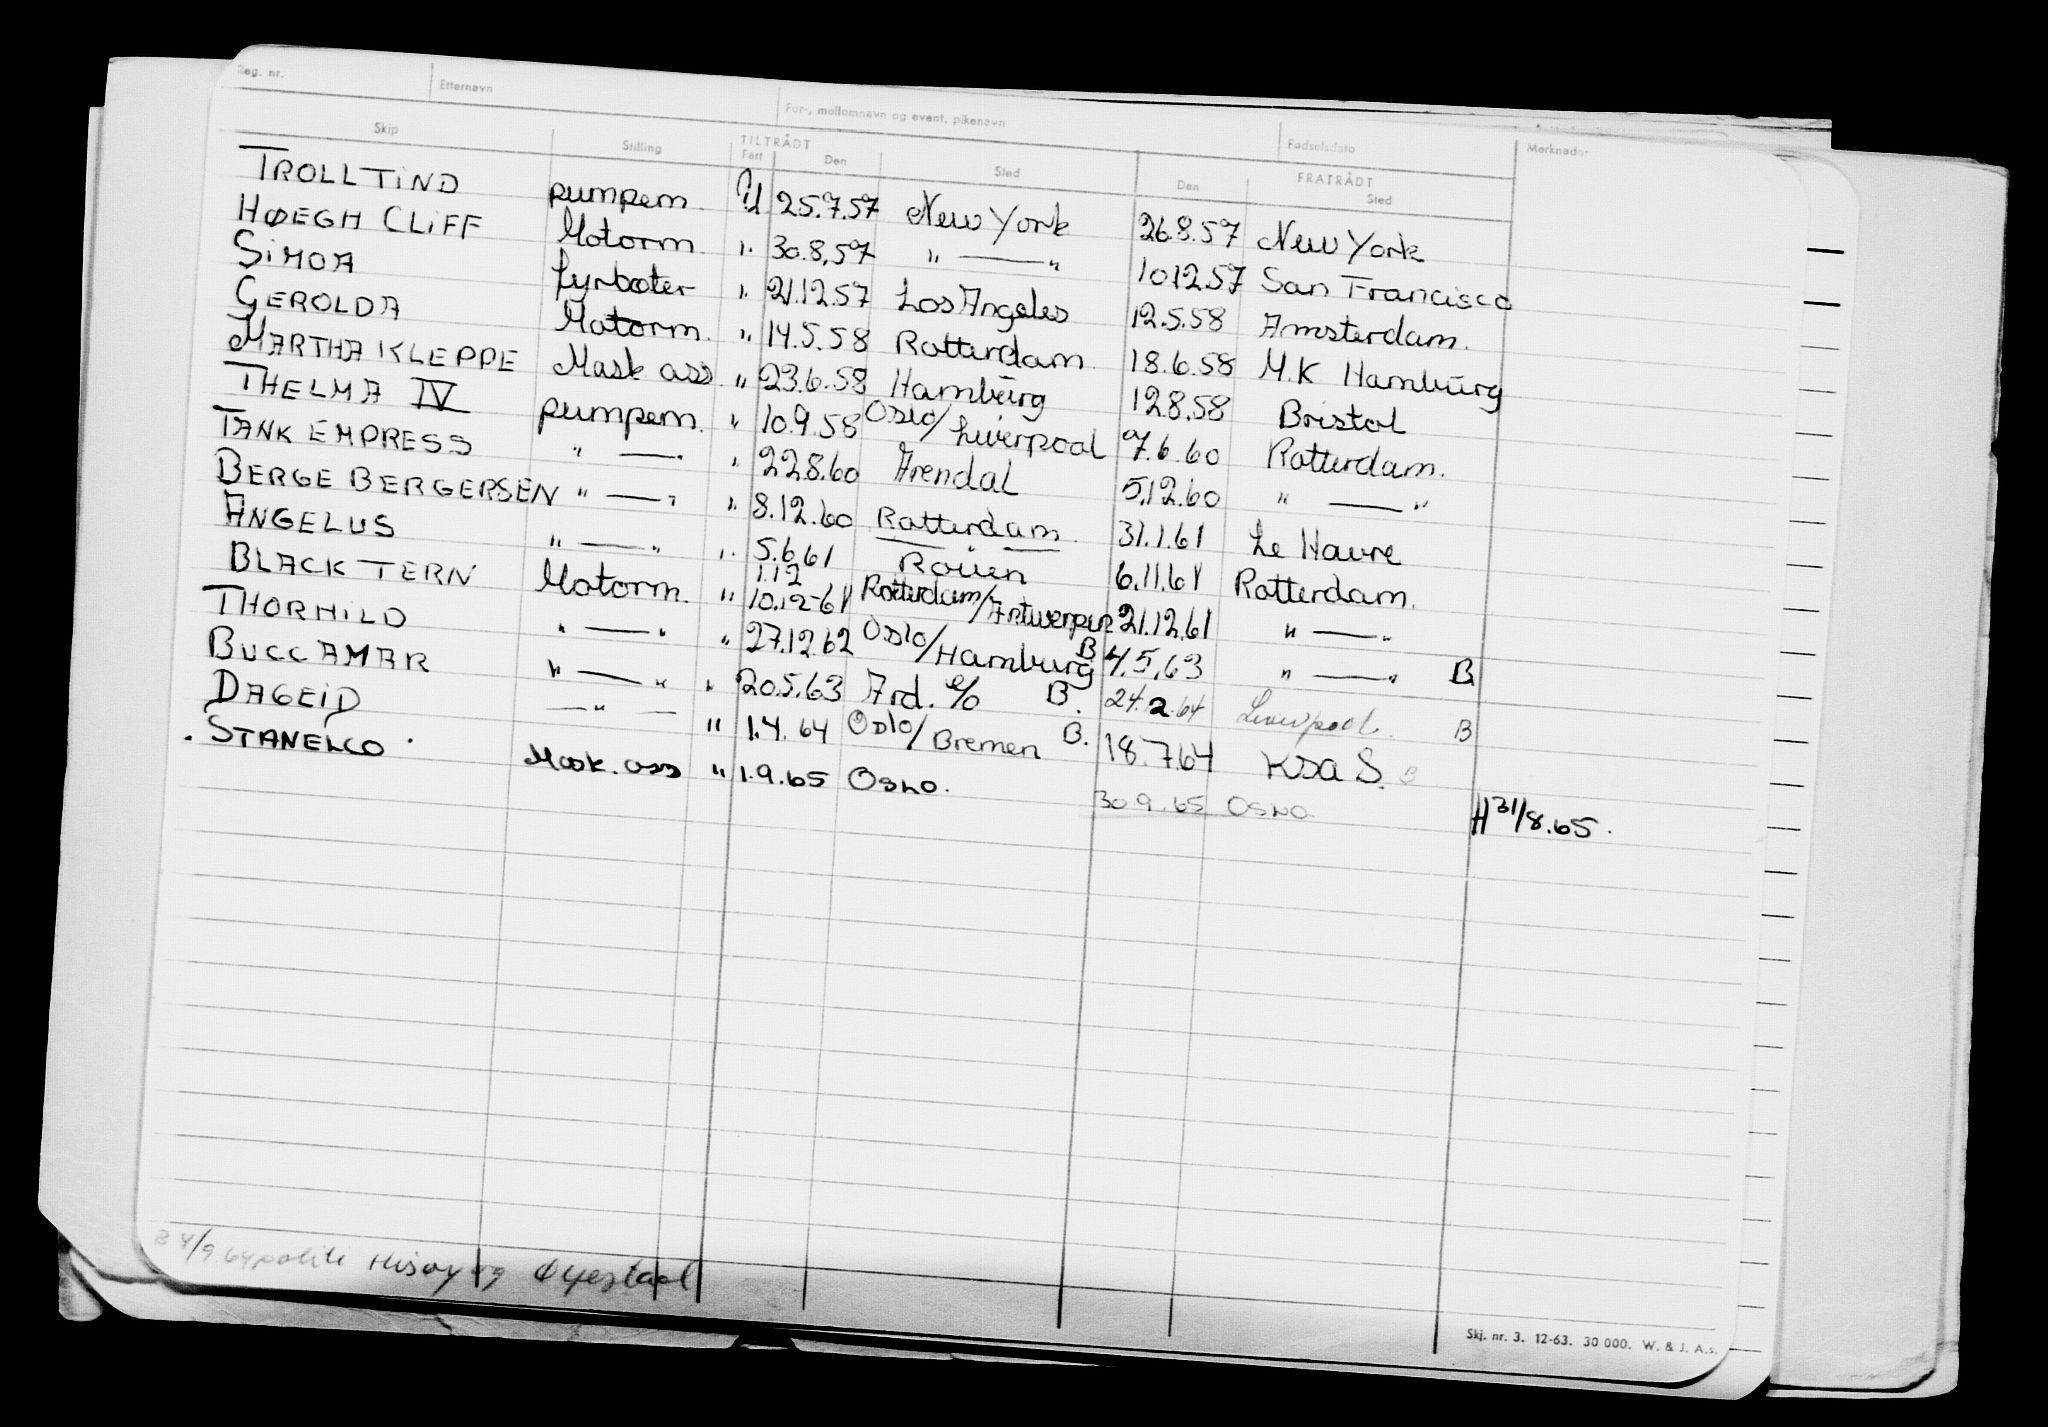 Reg. nr. Etternavn For-, mellomnavn og event. pikenavn Fødselsdato Merknader
Skip Stilling TILTRÅDT FRATRÅDT
Fart Den Sted Den Sted
TROLLTIND pumpem. U 25.7.57 New York 26.8.57 New York
HØEGH CLIFF Motorm. " 30.8.57 " — " 10.12.57 San Francisco
SIMOA Fyrbøter " 21.12.57 Los Angeles 12.5.58 Amsterdam.
GEROLDA Motorm. " 14.5.58 Rotterdam 18.6.58 M.K Hamburg
MARTHA KLEPPE Mask ass. " 23.6.58 Hamburg 12.8.58 Bristol
THELMA IV pumpem. " 10.9.58 Oslo/Liverpool 7.6.60 Rotterdam.
TANK EMPRESS " — " " 22.8.60 Arendal 5.12.60 " — "
BERGE BERGERSEN " — " " 8.12.60 Rotterdam. 31.1.61 Le Havre
ANGELUS " — " " 5.6.61 Rouen 6.11.61 Rotterdam.
BLACK TERN Motorm. " 1.12 10.12-61 Rotterdam/Antwerpen 21.12.61 " — "
THORHILD " — " " 27.12.62 Oslo/Hamburg B 4.5.63 " — " B
BUCCAMAR " — " " 20.5.63 Ard. B. 24.2.64 Liverpool. B
DAGEID — " — " 1.4.64 Oslo/Bremen B. 18.7.64 KSA S. B
. STANELCO . Mask. ass " 1.9.65 OSLO. 30.9.65 OSLO. H 31/8.65.
B 4/9.64 politi Hisøy og Øyestad
Skj. nr. 3. 12-63. 30 000. W. & J. A.s.